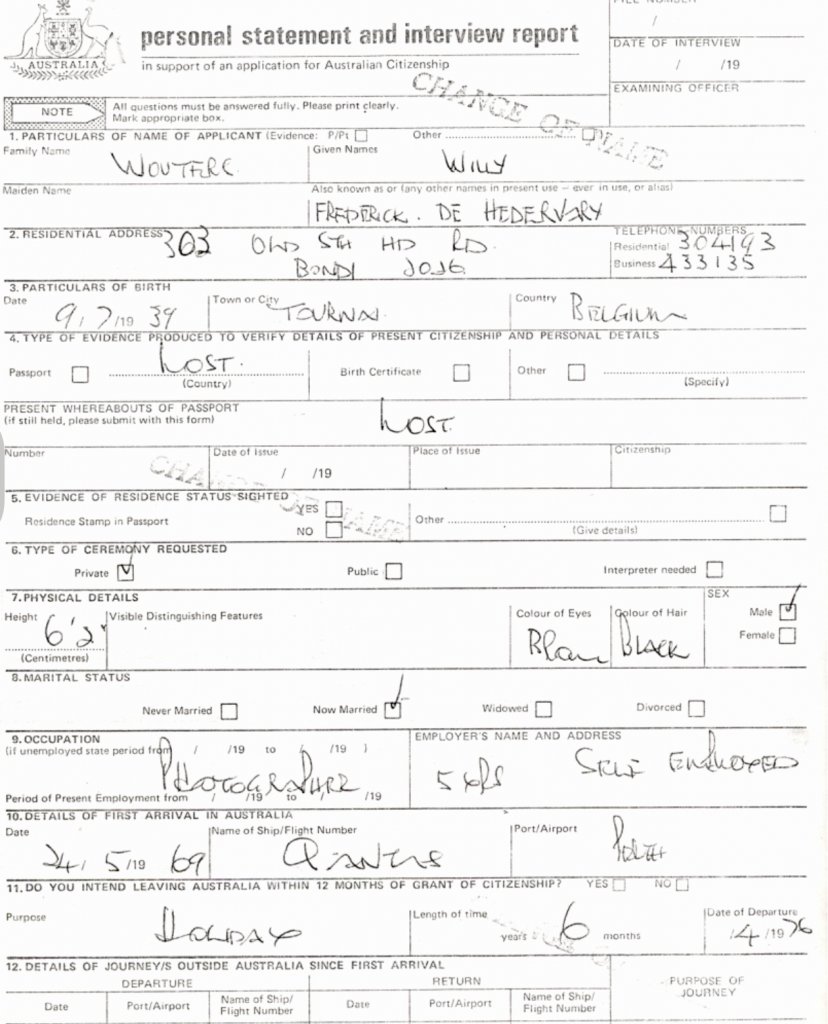 FILE NUMBER
/
AUSTRALIA
personal statement and interview report
in support of an application for Australian Citizenship
DATE OF INTERVIEW
/ /19
EXAMINING OFFICER
CHANGE OF NAME
NOTE
All questions must be answered fully. Please print clearly.
Mark appropriate box.
1. PARTICULARS OF NAME OF APPLICANT (Evidence: P/Pt Other
Family Name WOUTERS Given Names WILLY
Maiden Name Also known as or (any other names in present use — ever in use, or alias)
FREDERICK. DE HEDERVARY
2. RESIDENTIAL ADDRESS 303 OLD STH HD RD.
BONDI
TELEPHONE NUMBERS
Residential 304193
Business 433135
3. PARTICULARS OF BIRTH
Date 9/7/19 39 Town or City TOURNAI. Country BELGIUM
4. TYPE OF EVIDENCE PRODUCED TO VERIFY DETAILS OF PRESENT CITIZENSHIP AND PERSONAL DETAILS
Passport LOST. Birth Certificate Other
(Country) (Specify)
PRESENT WHEREABOUTS OF PASSPORT
(if still held, please submit with this form) LOST.
Number Date of Issue / /19 Place of Issue Citizenship
CHANGE OF NAME
5. EVIDENCE OF RESIDENCE STATUS SIGHTED
Residence Stamp in Passport YES NO Other
(Give details)
6. TYPE OF CEREMONY REQUESTED
Private Public Interpreter needed
7. PHYSICAL DETAILS
Height 6'2" Visible Distinguishing Features Colour of Eyes Brown Colour of Hair BLACK SEX Male
(Centimetres) Female
8. MARITAL STATUS
Never Married Now Married Widowed Divorced
9. OCCUPATION
(if unemployed state period from / /19 to / /19 )
PHOTOGRAPHER
Period of Present Employment from / /19 to / /19
EMPLOYER'S NAME AND ADDRESS
5 YRS SELF EMPLOYED
10. DETAILS OF FIRST ARRIVAL IN AUSTRALIA
Date 24/5/19 69 Name of Ship/Flight Number QANTAS Port/Airport PERTH
11. DO YOU INTEND LEAVING AUSTRALIA WITHIN 12 MONTHS OF GRANT OF CITIZENSHIP? YES NO
Purpose HOLIDAY Length of time years 6 months Date of Departure /4/19 76
12. DETAILS OF JOURNEY/S OUTSIDE AUSTRALIA SINCE FIRST ARRIVAL
DEPARTURE RETURN PURPOSE OF JOURNEY
Date Port/Airport Name of Ship/Flight Number Date Port/Airport Name of Ship/Flight Number